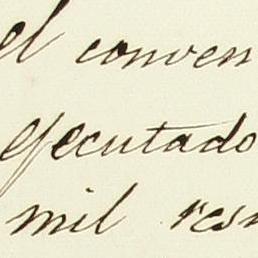 el conven
ejecutado
mil res